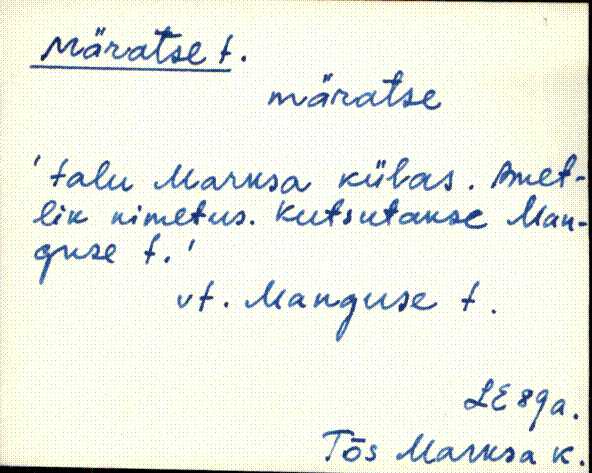 Märatse t.
märatse
' talu Marksa külas. Amet-
lik nimetus. Kutsutakse Man-
guse t.'
vt. Manguse t.
LE 89a.
Tõs Marksa k.